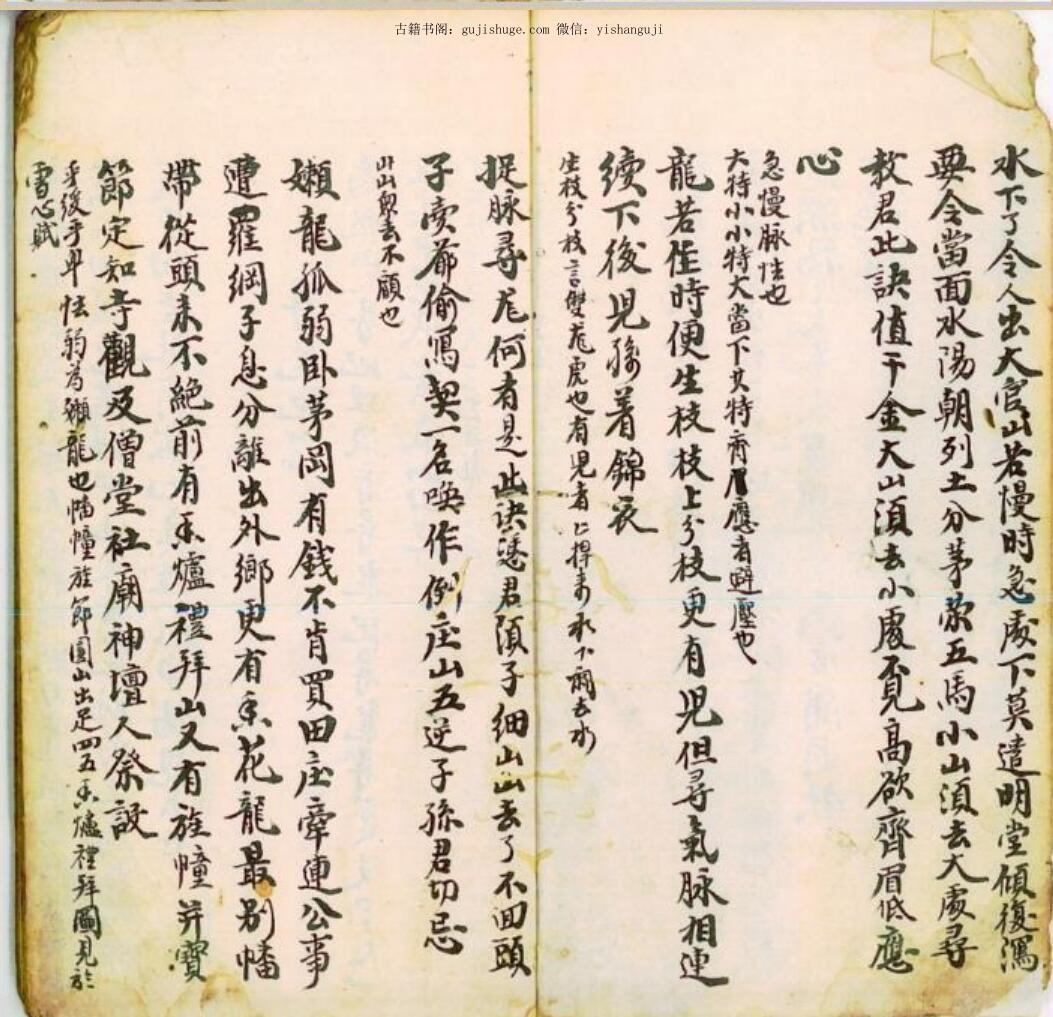 古籍书阁：gujishuge.com 微信：yishanguji
水下了令人出大官山若慢時急處下莫遣明堂傾復瀉
與令當面水陽朝列土分茅蒙五馬小山須去大處尋
教君此訣值千金大山須去小處覓高欲齊眉低應
心
急慢脉性也
大特小小特大當下其特齊眉應者避壓也
龍若住時便生枝枝上分枝更有児但尋氣脉相連
續下後児孫着錦衣
生枝分枝言雙龍虎也有児者上捍來水下關去水
捉脉尋龙何者是此訣憑君須子細山山去了不回頭
子賣爺偷寫契一名喚作倒庄山五逆子孫君切忌
山山與去不顧也
嬾龍孤弱卧茅岡有錢不肯買田庄牽連公事
遭羅綱子息分離出外鄉更有香花龍最别幡
帶從頭来不絶前有香爐禮拜山又有旌幢并寶
節定知寺觀及僧堂社廟神壇人祭設
手後手卑怯弱為嬾龍也幡幢旌節圓山出足四五香爐禮拜圖見於
雪心賦